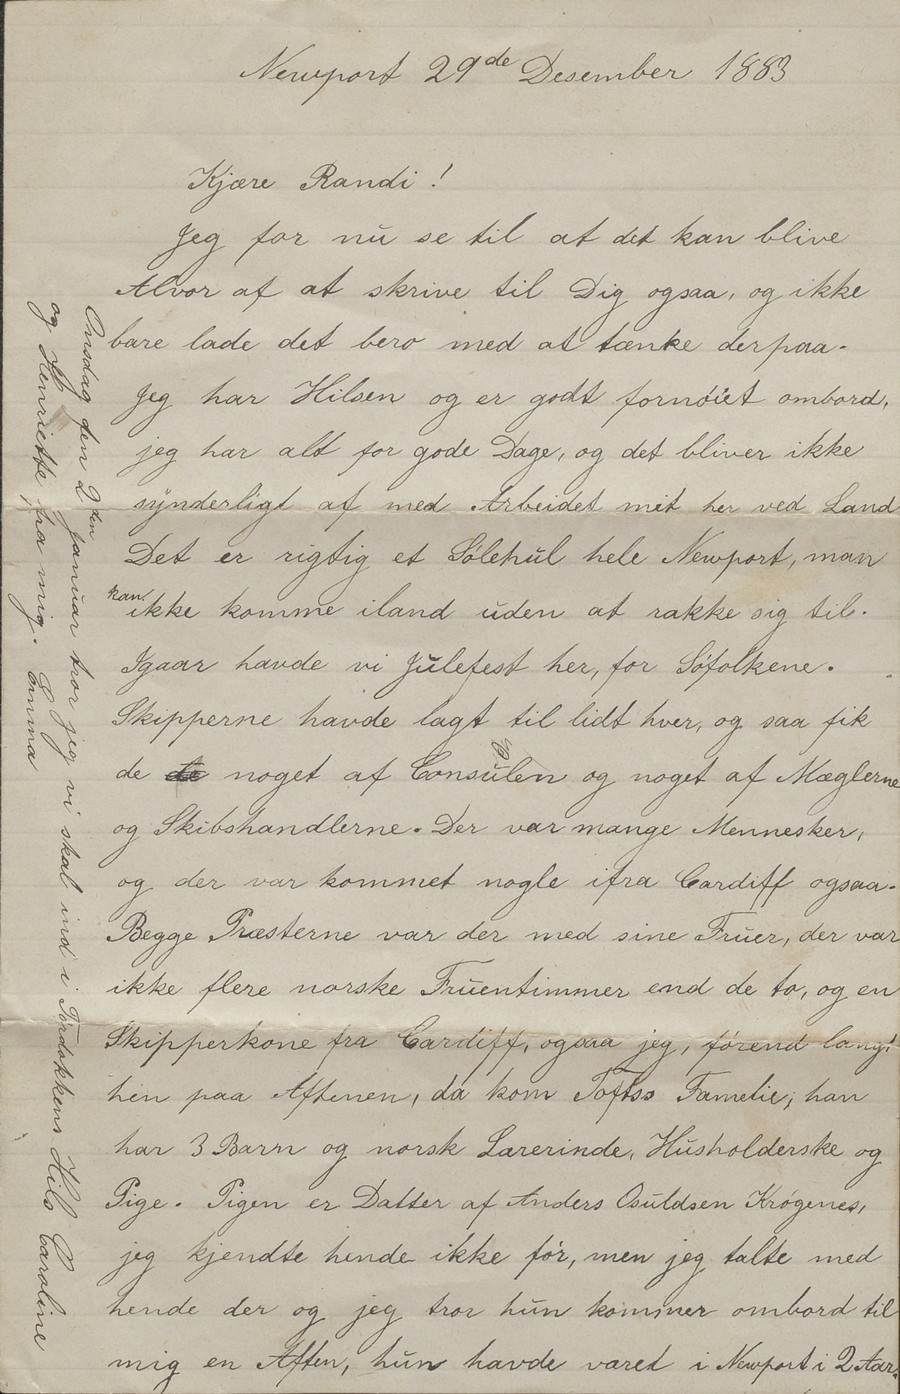 Newport 29de Desember 1883
Kjære Randi!
Jeg for nu se til at det kan blive
Alvor af at skrive til Dig ogsaa, og ikke
bare lade det bero med at tænke derpaa.
Jeg har Hilsen og er godt fornöiet ombord,
jeg har alt for gode Dage, og det bliver ikke
synderligt af med Arbeidet mit her ved Land
Det er rigtig et Sölehul hele Newport, man
kan ikke komme iland uden at rakke sig til.
Igaar havde vi Julefest her, for Söfolkene.
Skipperne havde lagt til lidt hver, og saa fik
de de noget af Consulen og noget af Mæglerne
og Skibshandlerne. Der var mange Mennesker,
og der var kommet nogle ifra Cardiff ogsaa.
Begge Præsterne var der med sine Fruer, der var
ikke flere norske Fruentimmer end de to, og en
Skipperkone fra Cardiff, ogsaa jeg, förend langt
hen paa Aftenen, da kom Toftss Famelie, han
har 3 Barn og norsk Lærerinde, Husholderske og
Pige. Pigen er Datter af Anders Osuldsen Krögenes,
jeg kjendte hende ikke för, men jeg talte med
hende der og jeg tror hun kommer ombord til
mig en Aften, hun havde været i Newport i 2 Aar.
Onsdag den 2den Januar tror jeg vi skal ind i Tördokken. Hils Caroline
og Henriette fra mig. Emma